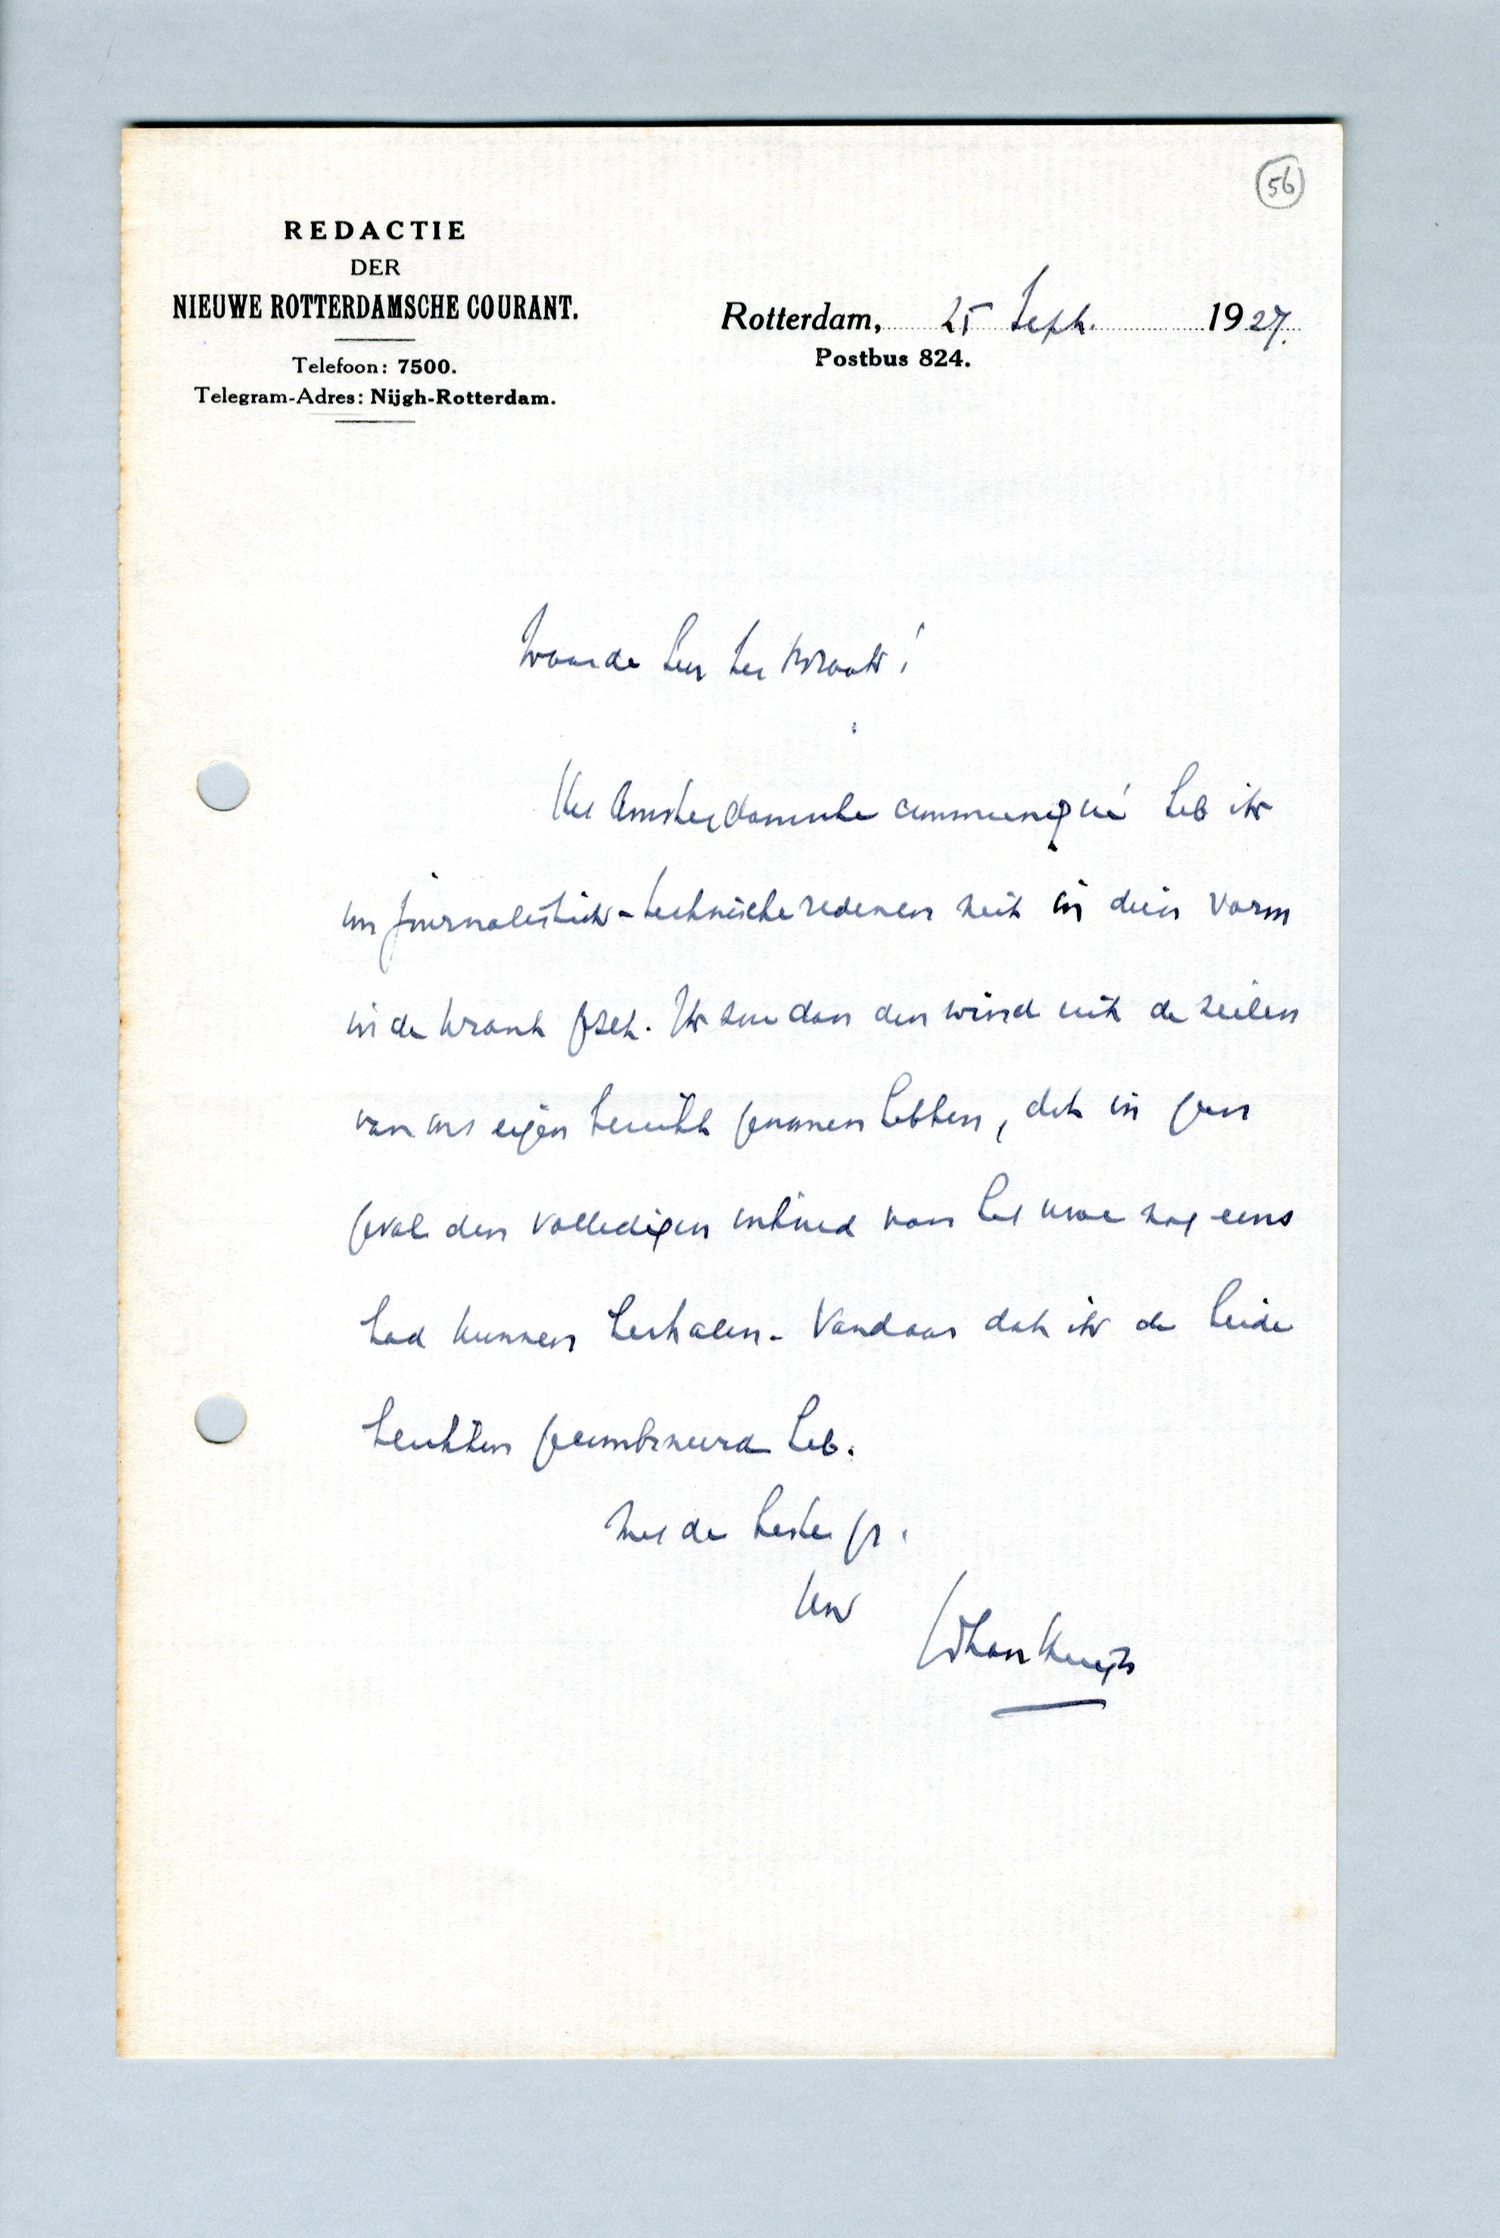 56
REDACTIE
DER
NIEUWE ROTTERDAMSCHE COURANT.
Rotterdam, 25 Sept. 1927.
Postbus 824.
Telefoon: 7500.
Telegram-Adres: Nijgh-Rotterdam.
Waarde heer ter Braak!
Het Amsterdamsche communiqué heb ik
om journalistiek-technische redenen niet in dien vorm
in de krant gezet. Ik zou dan den wind uit de zeilen
van ons eigen bericht genomen hebben, dat in geen
geval den volledigen inhoud van het uwe nog eens
had kunnen herhalen. Vandaar dat ik de beide
berichten gecombineerd heb.
Met de beste gr.
Uw
Johan Huijts